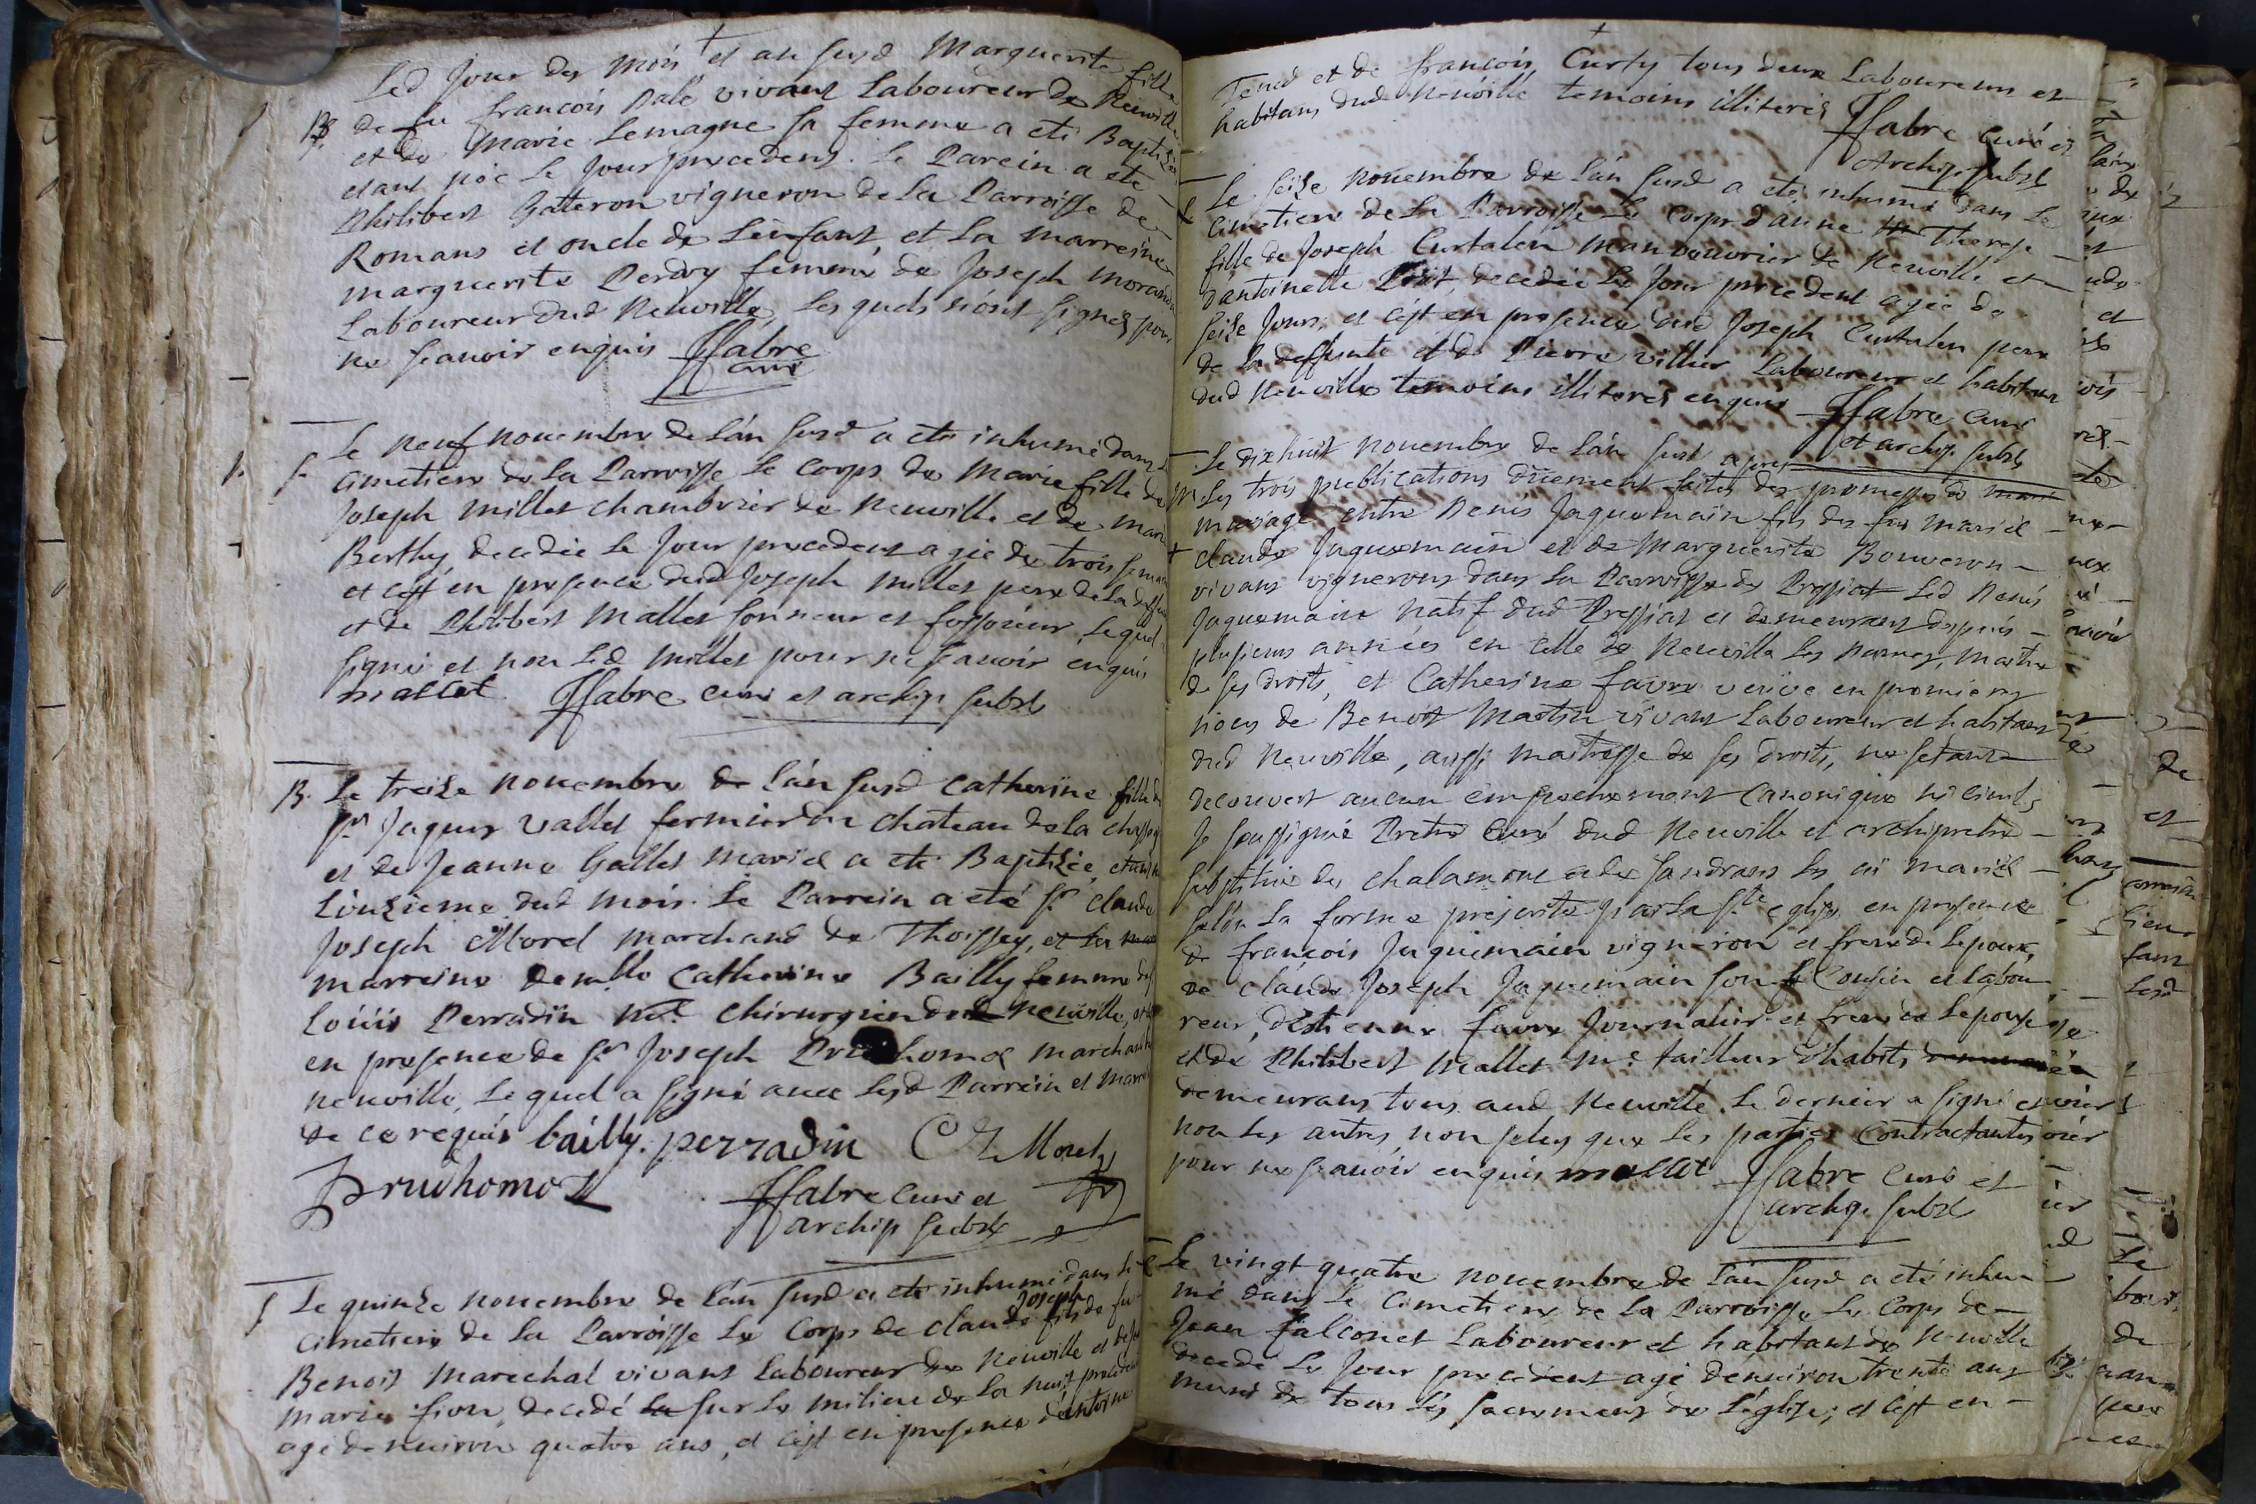 Led Jour des Mois et an susd Marguerite fille
B. de feu francois Pale vivant Laboureur de Neuville
et de Marie Lemagne sa femme a ete Baptisée
etant née le Jour precedent. Le Parein a ete
Philibert Gatteron vigneron de la Parroisse de
Romans et oncle de L'enfant, et La marreine
marguerite Perdry femme de Joseph morand
Laboureur dud Neuville, Les quels n'ont signes pour
ne scavoir enquis ffabre
curé
Le neuf novembre de L'an susd a ete inhumé dans Le
S. Cimetiere de La Parroisse Le Corps de Marie fille de
Joseph millet chambrier de Neuville et de marie
Berthy decedée Le Jour precedent agée de trois semaines
et c'est en presence dud Joseph millet pere de La deffunte
et de Philibert Mallet sonneur et fossoieur, Lequel
signé et non Led millet pour ne scavoir enquis
mallet ffabre curé et archip subst
B. Le treize novembre de L'an susd Catherine fille de
Sr Jaques Vallet fermier du chateau de La
et de Jeanne Gallet mariés a ete Baptisée, etant née
L'onzieme dud mois. Le Parrein a eté Sr claude
Joseph Morel marchand de Thoissey, et La
marreine demlle Catherine Bailly femme de Sr
Loüis Perradin me chirurgien dud Neuville, et
en presence de Sr Joseph Prudhomme marchand
Neuville, Lequel a signé avec Lesd Parrein et Marreine
de ce requis bailly. perradin CJ Morel
Prudhome
ffabre Curé et
archip subst
S Le quinze novembre de L'an susd a ete inhumé dans Le
Joseph
Cimetiere de La Parroisse Le Corps de claude fils de feu
Benoit Marechal vivant Laboureur de Neuville et de
marie fion, decedé La sur Le milieu de La nuit precedente
agé d'environ quatre ans, et c'est en presence d'antoine
Tenet et de francois Curty tous deux Laboureurs et
habitans dud Neuville temoins illiterés
ffabre Curé et
Archip. subst
Le seize novembre de L'an susd a eté inhumé dans Le
S Cimetiere de La Parroisse Le Corps d'anne Therese
fille de Joseph Curtalen manouvrier de Neuville et
d'antoinette decedée Le Jour precedent agée de
seize Jours, et c'est en presence dud Joseph Curtalen pere
de La deffunte et de Pierre villier Laboureur et habitans
dud Neuville temoins illiterés enquis ffabre Curé
et archip. subst
Le dixhuit novembre de L'an susd apres
M. Les trois publications düement faites des promesses de
mariage entre Denis Jaquemain fils des feu mariés
claude Jaquemain et de Marguerite Bouveron
vivans vignerons dans La Parroisse de Pressiat Led Denis
Jaquemain natif dud Pressiat et demeurant depuis
plusieurs années en celle de Neuville Les Dames, maitre
de ses droits, et Catherine favre veuve en premieres
noces de Benoit Martin vivant Laboureur et habitant
dud Neuville, aussi maitresse de ses droits, ne setant
decouvert aucun empechement Canonique ni civil,
Je soussigné Pretre Curé dud Neuville et archipretre
substitué de chalamont et de sandrans Les ai mariés
selon La forme prescrite par La Ste eglise en presence
de francois Jaquemain vigneron et frere de Lepoux,
de claude Joseph Jaquemain son Cousin et Labou
reur, d'Etienne favre Journalier et frere de Lepouse
et de Philibert Mallet me tailleur d'habits
demeurans tous aud Neuville. Le dernier a signé et
non Les autres non plus que Les parties Contractantes
pour ne scavoir enquis mallet ffabre Curé et
archip. subst
Le vingt quatre novembre de L'an susd a eté inhu
mé dans Le Cimetiere de La Parroisse Le Corps de
Jean falconet Laboureur et habitant de Neuville
decedé Le Jour precedent agé d'environ trente ans
muni de tous Les sacremens de L'église; et c'est en